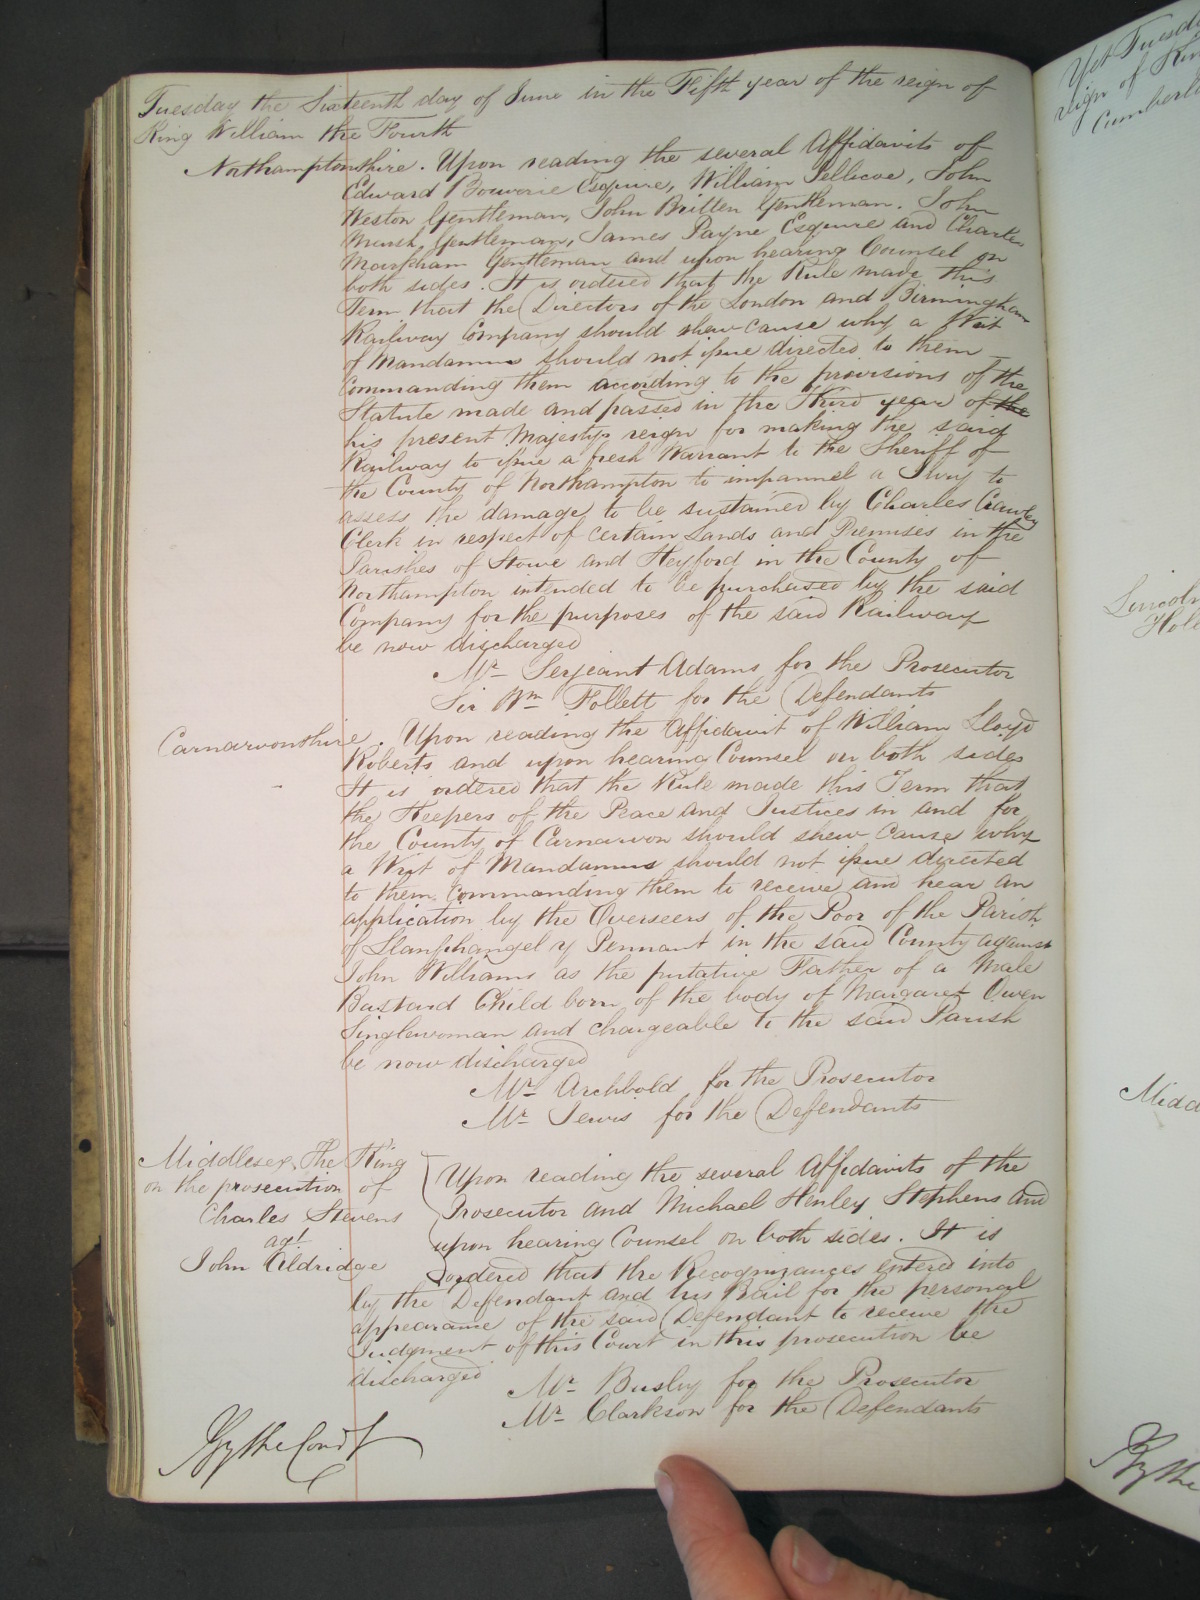 Tuesday the Sixteenth day of June in the Fifth year of the reign of
King William the Fourth
Northamptonshire. Upon reading the several Affidavits of
Edward Bouverie Esquire, William Jellicoe, John
Weston Gentleman, John Britten Gentleman. John
Marsh, Gentleman, James Payne Esquire and Charles
Markham Gentleman and upon hearing Counsel on
both sides. It is ordered that the Rule made this
Term that the Directors of the London and Birmingham
Railway Company should shew cause why a Writ
of Mandamus should not issue directed to them
Commanding them according to the provisions of the
Statute made and passed in the Third year of the
his present Majestys reign for making the said
Railway to issue a fresh Warrant to the Sheriff of
the County of Northampton to impannel a Jury to
assess the damage to be sustained by Charles Crawley
Clerk in respect of certain Lands and Premises in the
Parishes of Stowe and Heyford in the County of
Northampton intended to be purchased by the said
Company for the purposes of the said Railway
be now discharged
Mr Serjeant Adams for the Prosecutor
Sir Wm Follett for the Defendants
Carnarvonshire. Upon reading the Affidavit of William Lloyd
Roberts and upon hearing Counsel on both sides
It is ordered that the Rule made this Term that
the Keepers of the Peace and Justices in and for
the County of Carnarvon should shew cause why
a Writ of Mandamus should not issue directed
to them Commanding them to receive and hear an
application by the Overseers of the Poor of the Parish
of Llanfihangel y Pennant in the said County against
John Williams as the putative Father of a Male
Bastard Child born of the body of Margaret Owen
Singlewoman and chargeable to the said Parish
be now discharged
Mr Archbold for the Prosecutor
Mr Jervis for the Defendants
Middlesex, The King
on the prosecution of
Charles Stevens
agt
John Aldridge
Upon reading the several Affidavits of the
Prosecutor and Michael Henley Stephens and
upon hearing Counsel on both sides. It is
ordered that the Recognizances entered into
by the Defendant and his Bail for the personal
appearance of the said Defendant to receive the
Judgment of this Court in this prosecution be
discharged
Mr Busby for the Prosecutor
Mr Clarkson for the Defendants
By the Court
Yet Tuesda
reign of Kin
Cumberla
Lincoln
Holl
Midd
By the